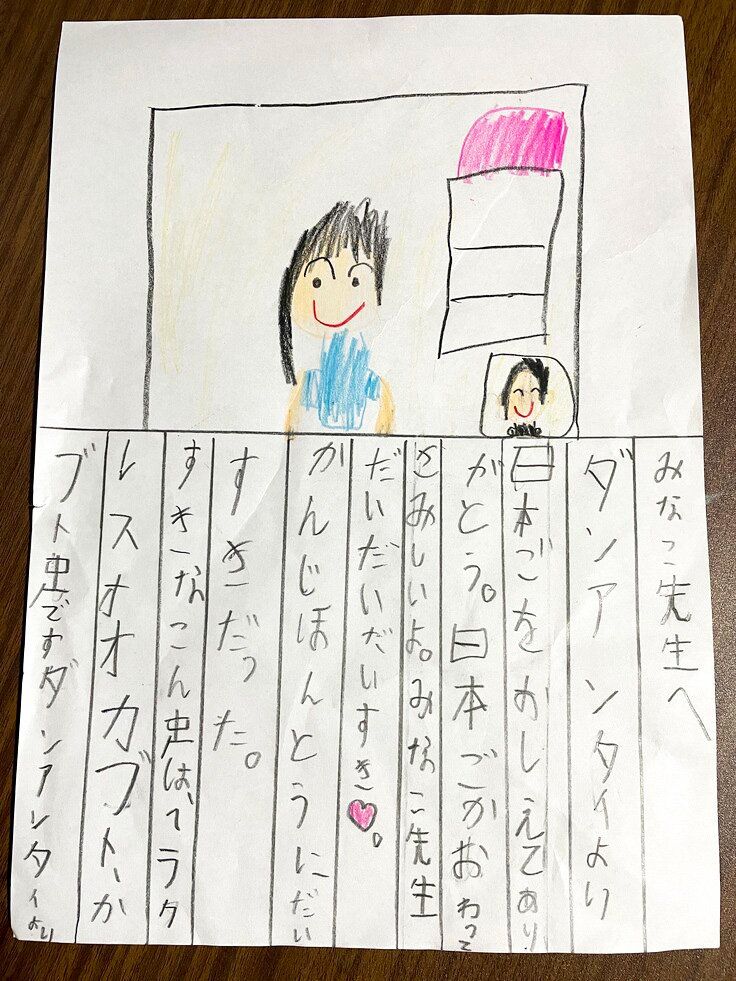 みなこ先生へ
ダンア ンタイより
日本ごを おしえてあり
がとう。日本ごがおわって
さみしいよ。みなこ先生
だいだいだいだいすき♥。
かんじほんとうにだい
すきだった。
すきなこん虫は、ヘラク
レスオオカブト、か
ブト虫ですダンアンタイより